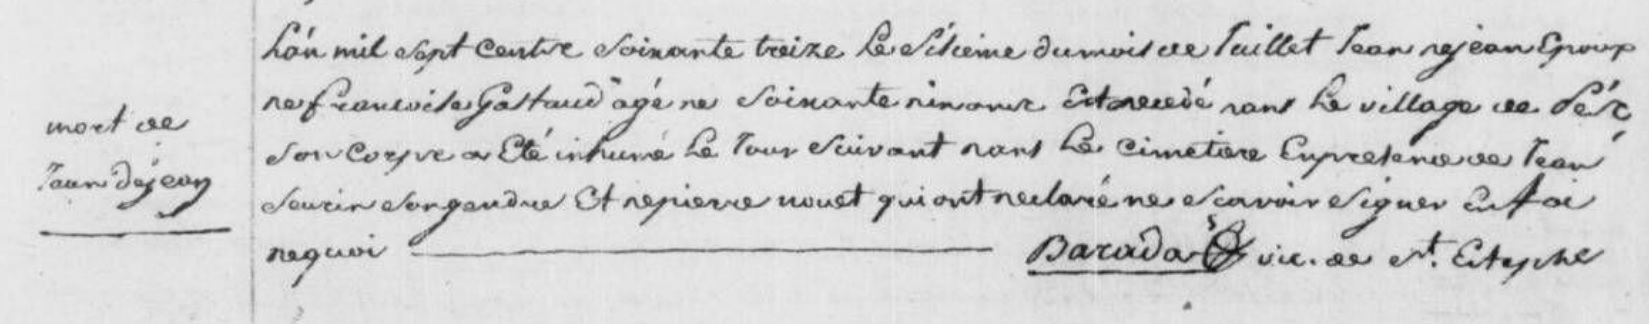 mort de
Jean dejean
L'an mil sept centre soixante treize le sixieme du mois de Juillet Jean dejean Epoux
de francoise Gastaud agé de soixante dix ans Est decedé dans le village de
son corps a Eté inhumé le Jour suivant dans le cimetiere En presence de Jean
seurin son gendre Et de pierre nouet qui ont declaré ne scavoir signer En foi
de quoi Barada vic. de st. Estephe